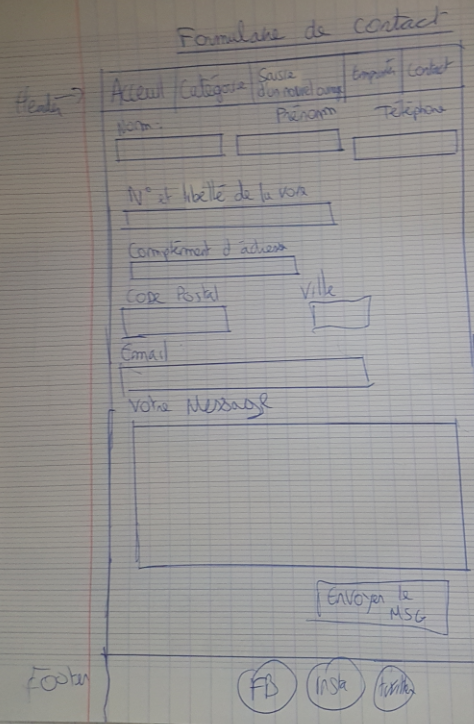 Formulaire de contact
Header
Acceuil Catégorie Saisie d'un nouvel ouvrage Emprunts Contact
Nom: Prénom Téléphone
N° et libellé de la voie
Complément d'adresse
Code Postal Ville
Email
Votre Message
Envoyer le
MSG
Footer FB Insta twitter